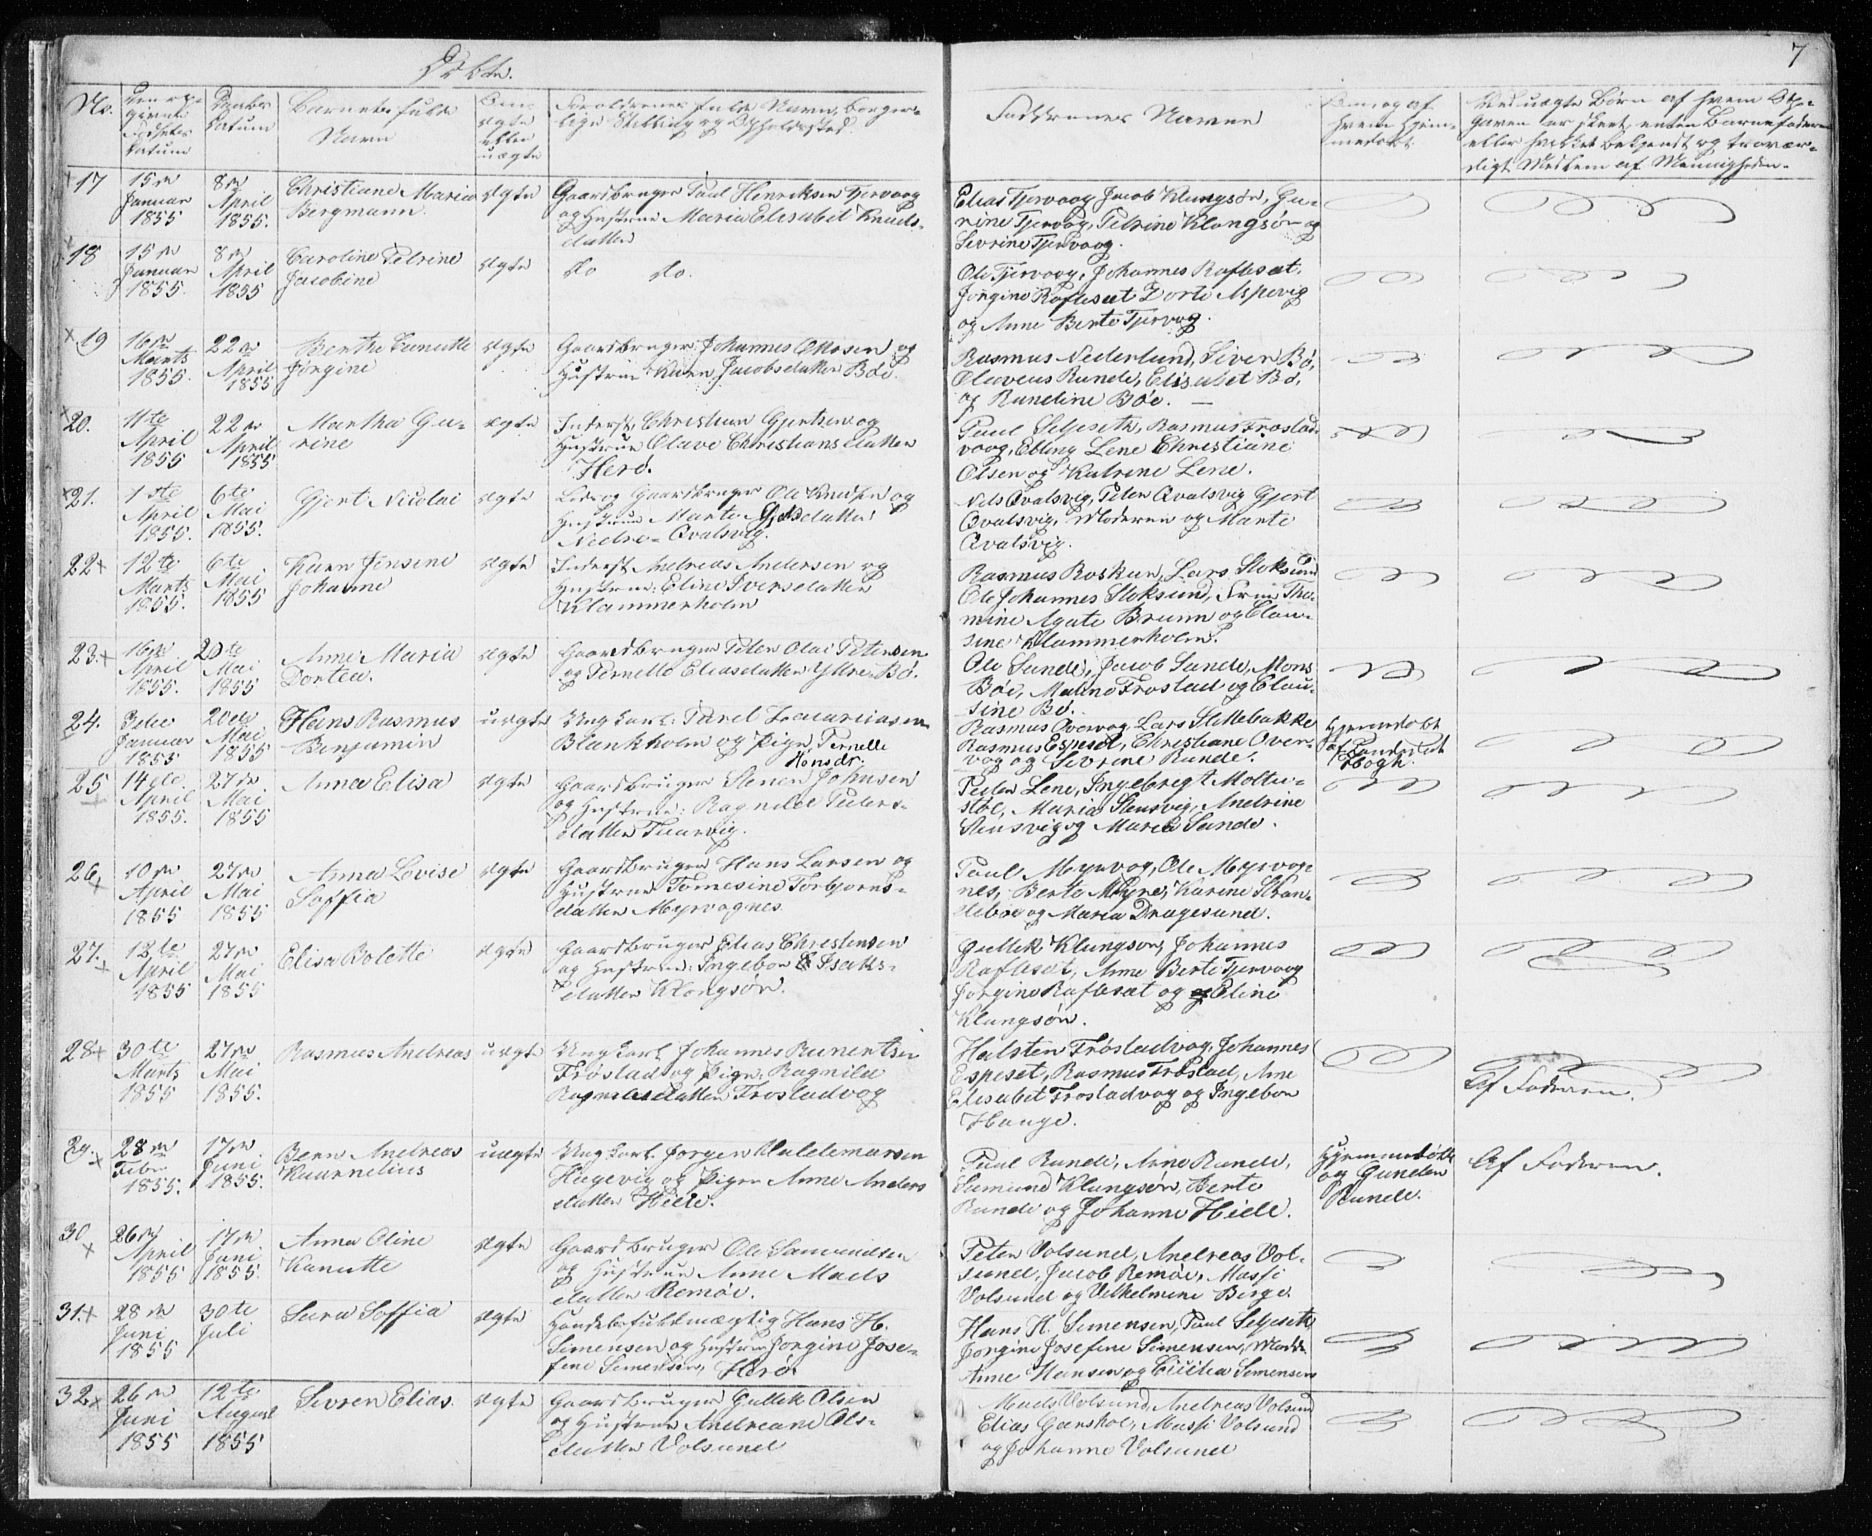 7
Døbte.
No.
Barnets fulde
Navn
Faddernes Navne
17
15de
Januar
1855
8de
April
1855.
Christiane Maria
Bergmann.
ægte
Gaardbruger Paul Henriksen Tjervaag
og Hustrue Maria Elisabet Knuds-
datter
Elias Tjervaag, Jacob Klungsør, Gu-
rine Tjervaag, Petrine Klongsør og
Sevrine Tjervaag.
18
15de
Januar
1855.
8de
April
1855
Caroline Petrine
Jacobine
ægte
do do.
Ole Tjervaag, Johannes Raftesæt,
Jørgine Raftesæt Dorte Aspevig
og Anne Berte Tjervag.
19
16de
Marts
1855.
22de
April
1855
Berthe Canutte
Jørgine
ægte
Gaardbruger Johannes Olosen og
Hustrue Karn Jacobsdatter Böe.
Rasmus Nederlund, Siver Bö,
Olaveus Runde, Elisabet Bö,
og Rundine Böe. —
20.
11te
April
1855
22de
April
1855
Martha Gu-
rine
ægte
Inderst, Christian Gjertsen og
Hustrue Olave Christiansdatter
Herö.
Paul Seljeseth, Rasmus Frostad-
vaag, Elling Lene Christiane
Olsen og Katrine Lene.
21.
1ste
April
1855.
6te
Mai
1855.
Gjert Nicolai
ægte
Leie og Gaardbruger Ole Knudsen og
Hustrue Marte Gjertsdatter
Nedre-Qvalsvig.
Nils Qvalsvig, Peter Qvalsvig Gjert
Qvalsvig, Moderen og Marte
Qvalsvig.
22
12te
Marts
1855.
6te
Mai
1855
Karn Jensine
Johanne
ægte
Inderst Andreas Andersen og
Hustrue: Eline Iversdatter
Klammerholm
Rasmus Roskar, Lars Stoksund
Ole Johannes Stoksund, Tho-
mine Agate Brunn og Clau-
sine Klammerholm.
23.
16de
April
1855.
20de
Mai
1855
Anne Maria
Dortea.
ægte
Gaardbruger Peter Olai Petersen
og Pernelle Eliasdatter Yttre Bø.
Ole Sande, Jacob Sande, Mons
Böe, Maline Frostad og Clau-
sine Bø.
24.
3die
Januar
1855
20de
Mai
1855
Hans Rasmus
Benjamin
uægte
Ungkarl Parel Zacariasen
Blankholm og Pige Pernelle
Monsdr.
Rasmus Overvag, Lars Slettebakke
Rasmus Espeset, Christiane Over-
vog og Sevrine Runde.
Hjemmedøbt
af Landstat
Hogh.
25
14de
April
1855.
27de
Mai
1855
Anna Elisa
ægte
Gaardbruger Stener Johnsen
og Hustrue: Ragnilde Peders-
datter Tuarvig.
Peder Lene, Ingebregt Moltu-
stoe, Maria Stensvig, Andrine
Stensvig og Maria Sande.
26
10de
April
1855
27de
Mai
1855
Anna Lovise
Soffia
ægte
Gaardbruger Hans Larsen og
Hustrue Tomesine Torbjorns-
datter Myrvognes
Paul Myrvog, Ole Myrvog-
nes, Berte Myrnes, Karine Stran-
debøe og Maria Dragesund.
27.
12te
April
1855
27de
Mai
1855
Elisa Bolette
ægte
Gaardbruger Elias Christensen
og Hustrue: Ingebor Isaks-
datter Klongsør.
Gullik Klungsør, Johannes
Raftesæt, Anne Berte Tjervaag
Jørgine Raftesæt og Eline
Klungsør.
28
30te
Marts
1855
27de
Mai
1855.
Rasmus Andreas
uægte
Ungkarl Johannes Runentsen
Frøstad og Pige, Ragnilda
Rasmusdatter Frostadvog
Halsten Frøstadvog, Johannes
Espeset, Rasmus Frostad, Ane
Elisabet Frostadvog og Ingebor
Hauge.
Af Faderen.
29.
28de
Febr
1855.
17de
Juni
1855.
Bern Andreas
Kaarnelius
uægte
Ungkarl Jørgen Valdemarsen
Hagevig og Pigen Anne Anders
datter Hide.
Paul Runde, Arne Runde,
Samund Klungsør, Berte
Runde og Johanne Hide.
Hjemmedøbt
og Gunder
Runde.
Af Faderen.
30
26de
April
1855
17de
Juni
1855.
Anna Oline
Kanutte
ægte
Gaardbruger Ole Samundsen
og Hustrue Anne Mads
datter Remöe.
Peter Volsund, Andreas Vol-
sund, Jacob Remöe, Massi
Volsund og Vilhelmine Birge.
31.
28de
Juni
1855
30te
Juli
Sara Soffia
ægte
Handelsfuldmægtig Hans H.
Simensen og Hustrue Jorgine Jose-
fine Simensen, Herø.
Hans H. Simensen, Paul Seljeseth,
Jorgine Josefine Simensen, Mad.
Anne Hansen og Cicilia Simensen
32.
26de
Juni
1855
12te
August
1855
Sevren Elias.
ægte
Gaardbruger Gullik Olsen
og Hustrue Andreane Ols-
datter Volsund
Mads Volsund, Andreas Volsund
Elias Gjerskoe, Massi Volsund
og Johanne Volsund